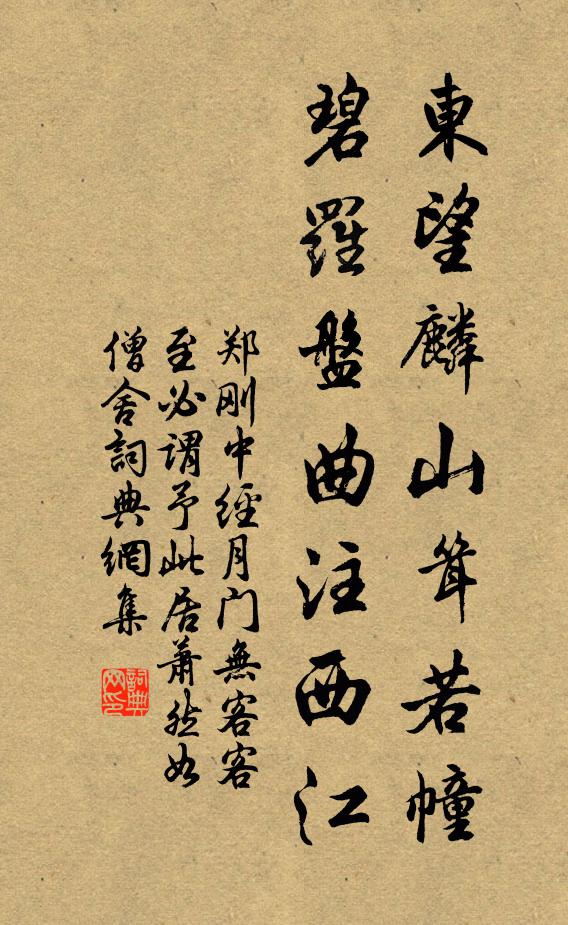 東望麟山耸若幢
碧羅盤曲注西江
郑刚中經月门無客客
至必谓予此居萧然如
僧舍詞典網集
詞典
网印